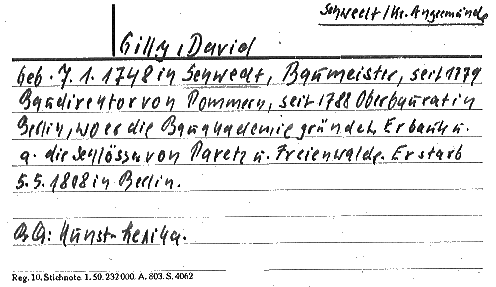 Schwedt/Kr. Angermünde
Gilly, David
Geb. 7.1.1748 in Schwedt, Baumeister, seit 1779
Baudirektor von Pommern, seit 1788 Oberbaurat in
Berlin, wo er die Bauakademie gründet. Er baute u.
a. die Schlösser von Paretz u. Freienwalde. Er starb
5.5.1808 in Berlin.
BQ: Kunst-Lexika.
Reg. 10. Stichnote. 1. 50. 232000. A. 803. S. 4062